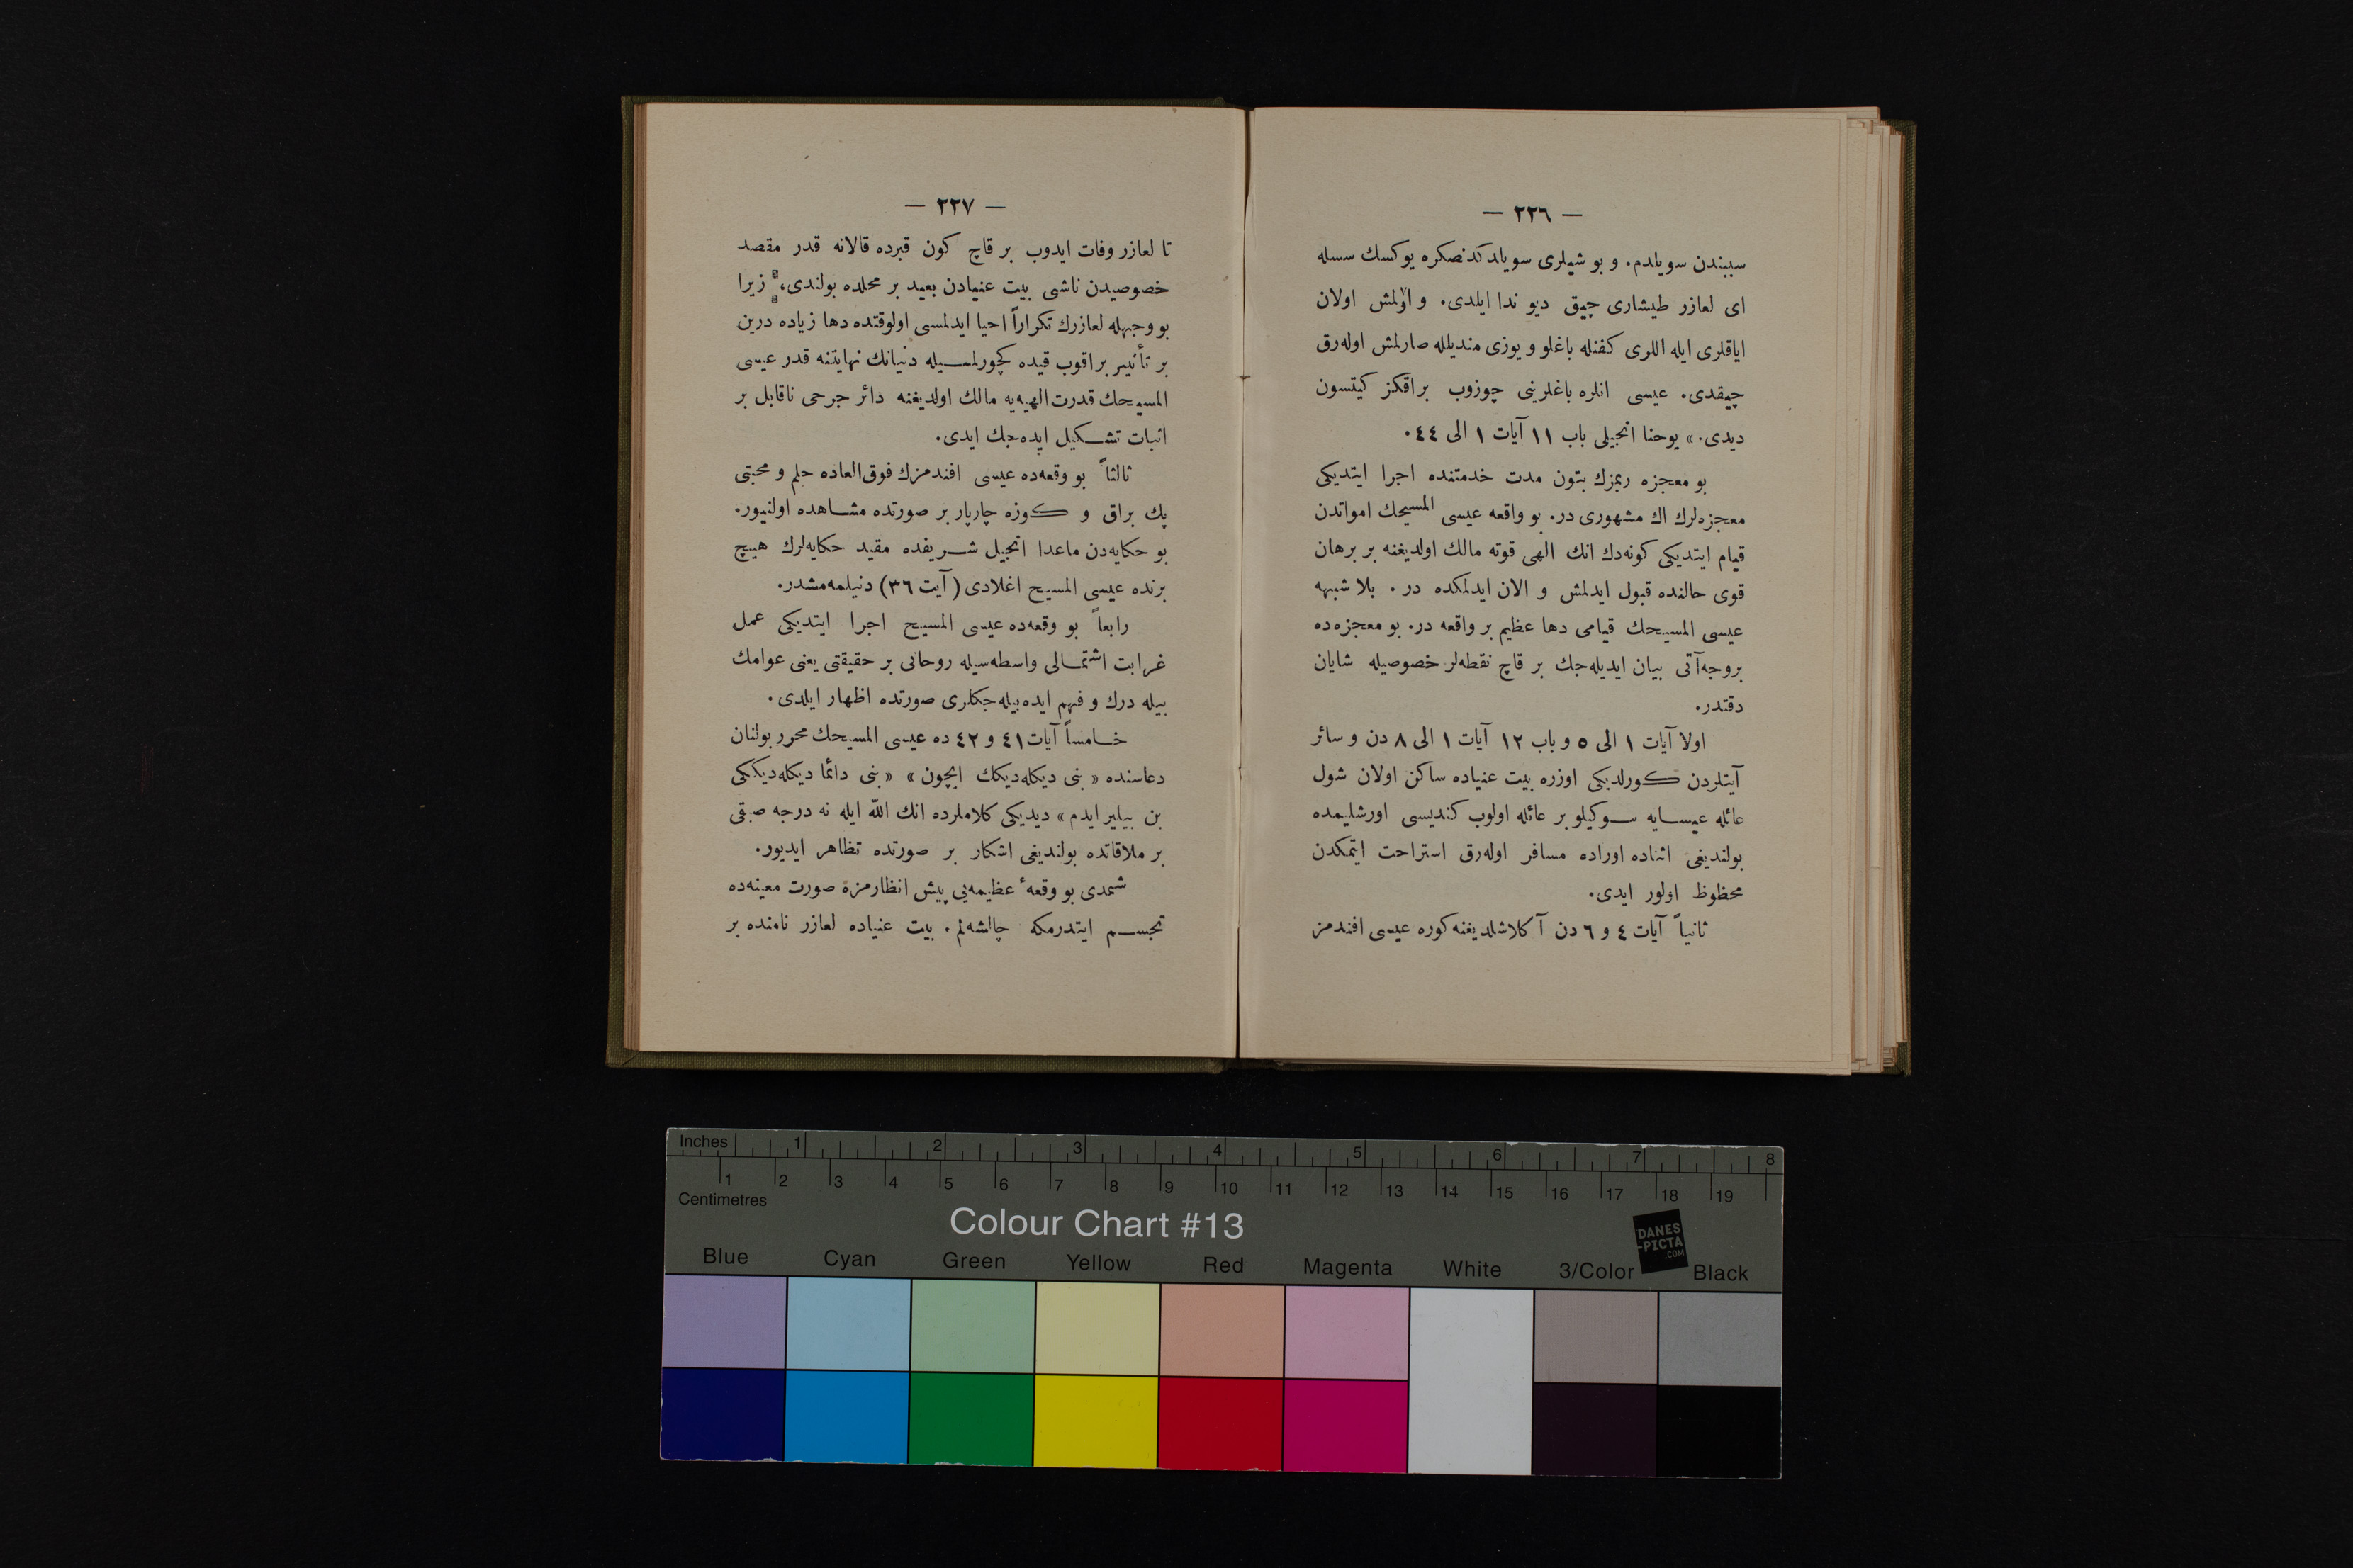 — ٢٢٦ —
سببندن سویلدم. و بو شیلری سویلدكدنصكره یوكسك سسله
ای لعازر طیشاری چیق دیو ندا ایلدی. و اولمش اولان
ایاقلری ایله اللری كفنله باغلو و یوزی مندیلله صارلمش اوله‌رق
چیقدی. عیسی انلره باغلرینی چوزوب براقكز كیتسون
دیدی.» یوحنا انجیلی باب ١١ آیات ١ الی ٤٤.
بو معجزه ربمزك بتون مدت خدمتنده اجرا ایتدیكی
معجزه‌لرك اك مشهوری در. بو واقعه عیسی المسیحك امواتدن
قیام ایتدیكی كونه‌دك انك الهی قوته مالك اولدیغنه بر برهان
قوی حالنده قبول ایدلمش و الان ایدلمكده در. بلا شبهه
عیسی المسیحك قیامی دها عظیم بر واقعه در. بو معجزه‌ده
بروجه‌آتی بیان ایدیله‌جك بر قاچ نقطه‌لر خصوصیله شایان
دقتدر.
اولا آیات ١ الی ٥ و باب ١٢ آیات ١ الی ٨ دن و سائر
آیتلردن كورلدیكی اوزره بیت عنیاده ساكن اولان شول
عائله عیسایه سوكیلو بر عائله اولوب كندیسی اورشلیمده
بولندیغی اثناده اوراده مسافر اوله‌رق استراحت ایتمكدن
محظوظ اولور ایدی.
ثانیاً آیات ٤ و ٦ دن آكلاشلدیغنه كوره عیسی افندمز
— ٢٢٧ —
تا لعازر وفات ایدوب بر قاچ كون قبرده قالانه قدر مقصد
خصوصیدن ناشی بیت عنیادن بعید بر محلده بولندی، زیرا
بو وجهله لعازرك تكراراً احیا ایدلمسی اولوقتده دها زیاده درین
بر تأثیر براقوب قیده كچورلمسیله دنیانك نهایتنه قدر عیسی
المسیحك قدرت‌الهیه‌یه مالك اولدیغنه دائر جرحی ناقابل بر
اثبات تشكیل ایده‌جك ایدی.
ثالثاً بو وقعه‌ده عیسی افندمزك فوق‌العاده حلم و محبتی
پك براق و كوزه چارپار بر صورتده مشاهده اولنیور.
بو حكایه‌دن ماعدا انجیل شریفده مقید حكایه‌لرك هیچ
برنده عیسی المسیح اغلادی (آیت ٣٦) دنیلمه‌مشدر.
رابعاً بو وقعه‌ده عیسی المسیح اجرا ایتدیكی عمل
غرابت اشتمالی واسطه‌سیله روحانی بر حقیقتی یعنی عوامك
بیله درك و فهم ایده‌بیله‌جكلری صورتده اظهار ایلدی.
خامساً آیات ٤١ و ٤٢ ده عیسی المسیحك محرر بولنان
دعاسنده «بنی دیكله‌دیكك ایچون» «بنی دائما دیكله‌دیككی
بن بیلیر ایدم» دیدیكی كلاملرده انك الله ایله نه درجه صیقی
بر ملاقاتده بولندیغی اشكار بر صورتده تظاهر ایدیور.
شمدی بو وقعۀ عظیمه‌یی پیش انظارمزه صورت معینه‌ده
تجسم ایتدرمكه چالشه‌لم. بیت عنیاده لعازر نامنده بر
Inches 1 2 3 4 5 6 7 8
1 2 3 4 5 6 7 8 9 10 11 12 13 14 15 16 17 18 19
Centimetres
Colour Chart #13
DANES
-PICTA
.COM
Blue Cyan Green Yellow Red Magenta White 3/Color Black